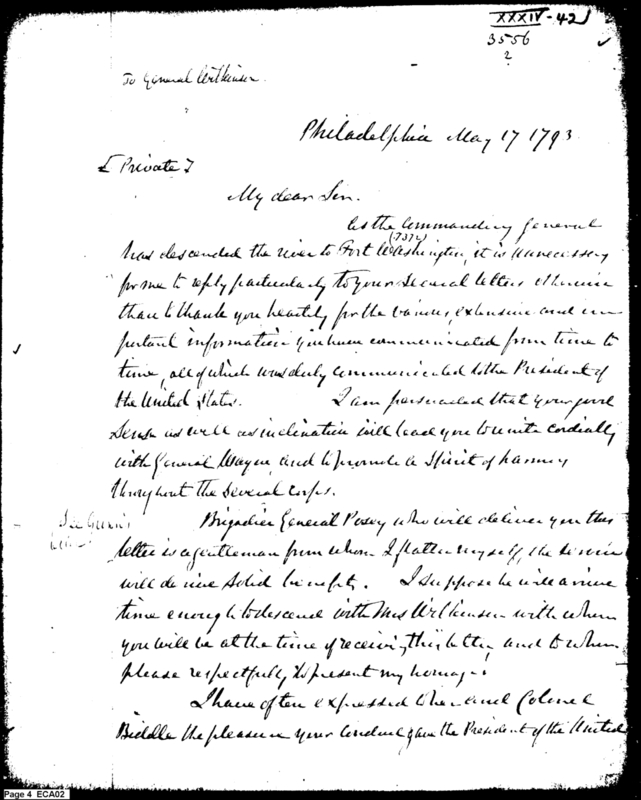 XXXIV-42
3556
2
To General Wilkinson
Philadelphia May 17 1793
[Private]
My dear Sir.
As the Commanding General
has descended the river to Fort Washington, it is unnecessary
for me to reply particularly to your several letters otherwise
than to thank you heartily for the various extensive and im
portant information you have communicated from time to
time, all of which was duly communicated to the President of
the United States. I am persuaded that your good
Sense as well as inclination will lead you to unite cordially
with General Wayne, and to promote a Spirit of harmony
throughout the several corps.
Brigadier General Posey who will deliver you this
letter is a gentleman from whom I flatter myself, the service
will derive solid benefits. I suppose he will arrive
time enough to descend with Mrs Wilkinson with whom
you will be at the time of receiving this letter and to whom
please respectfully to present my homage.
I have often expressed to her and Colonel
Biddle the pleasure your conduct gave the President of the United
Page 4 ECA02